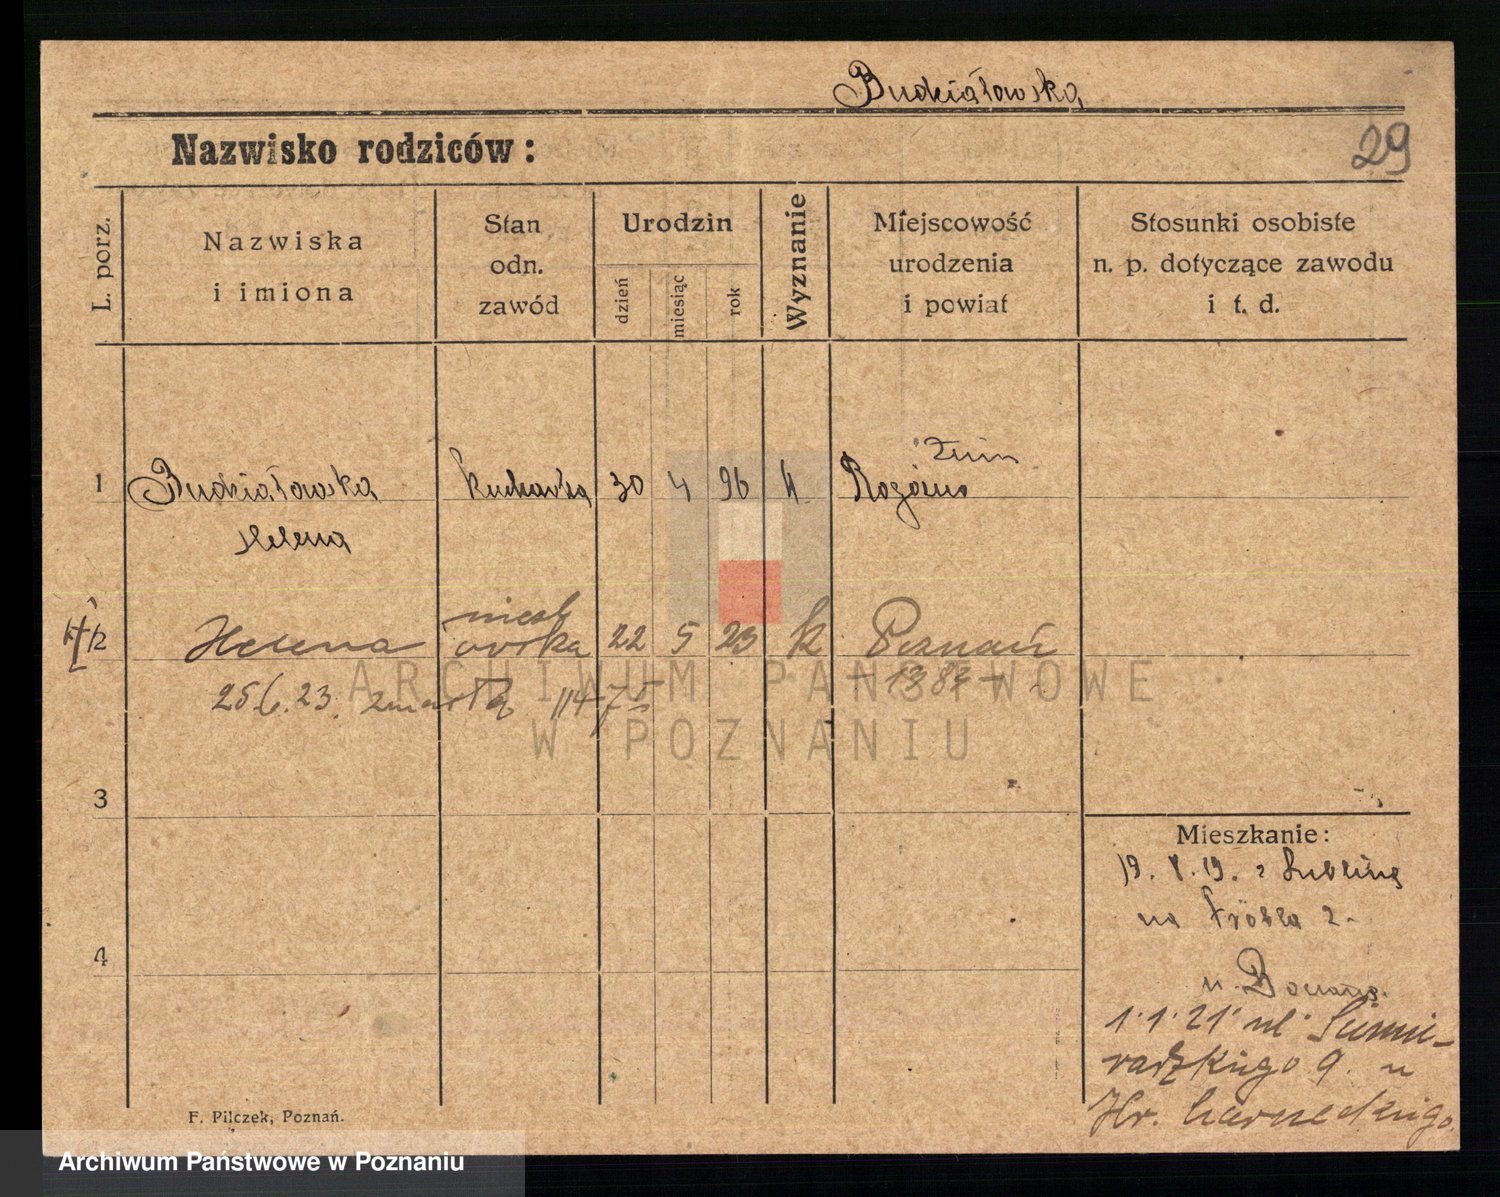 Budziałowska
Nazwisko rodziców:
29
L. porz.
Nazwiska
i imiona
Stan
odn.
zawód
Urodzin
dzień
miesiąc
rok
Wyznanie
Miejscowość
urodzenia
i powiat
Stosunki osobiste
n. p. dotyczące zawodu
i t. d.
Żnin
1 Budziałowska kucharka 30 4 96 k Rogówo
Helena
2 Helena córka 22 5 23 k Poznań
25.6.23. zmarła 1383
ARCHIWUM PAŃSTWOWE
W POZNANIU
3
Mieszkanie:
19. 8. 19. z Lublina
na Grobla 2
4
1.1.21 ul. Siemi-
radzkiego 9. u
Hr. Czarneckiego
F. Pilczek, Poznań.
Archiwum Państwowe w Poznaniu